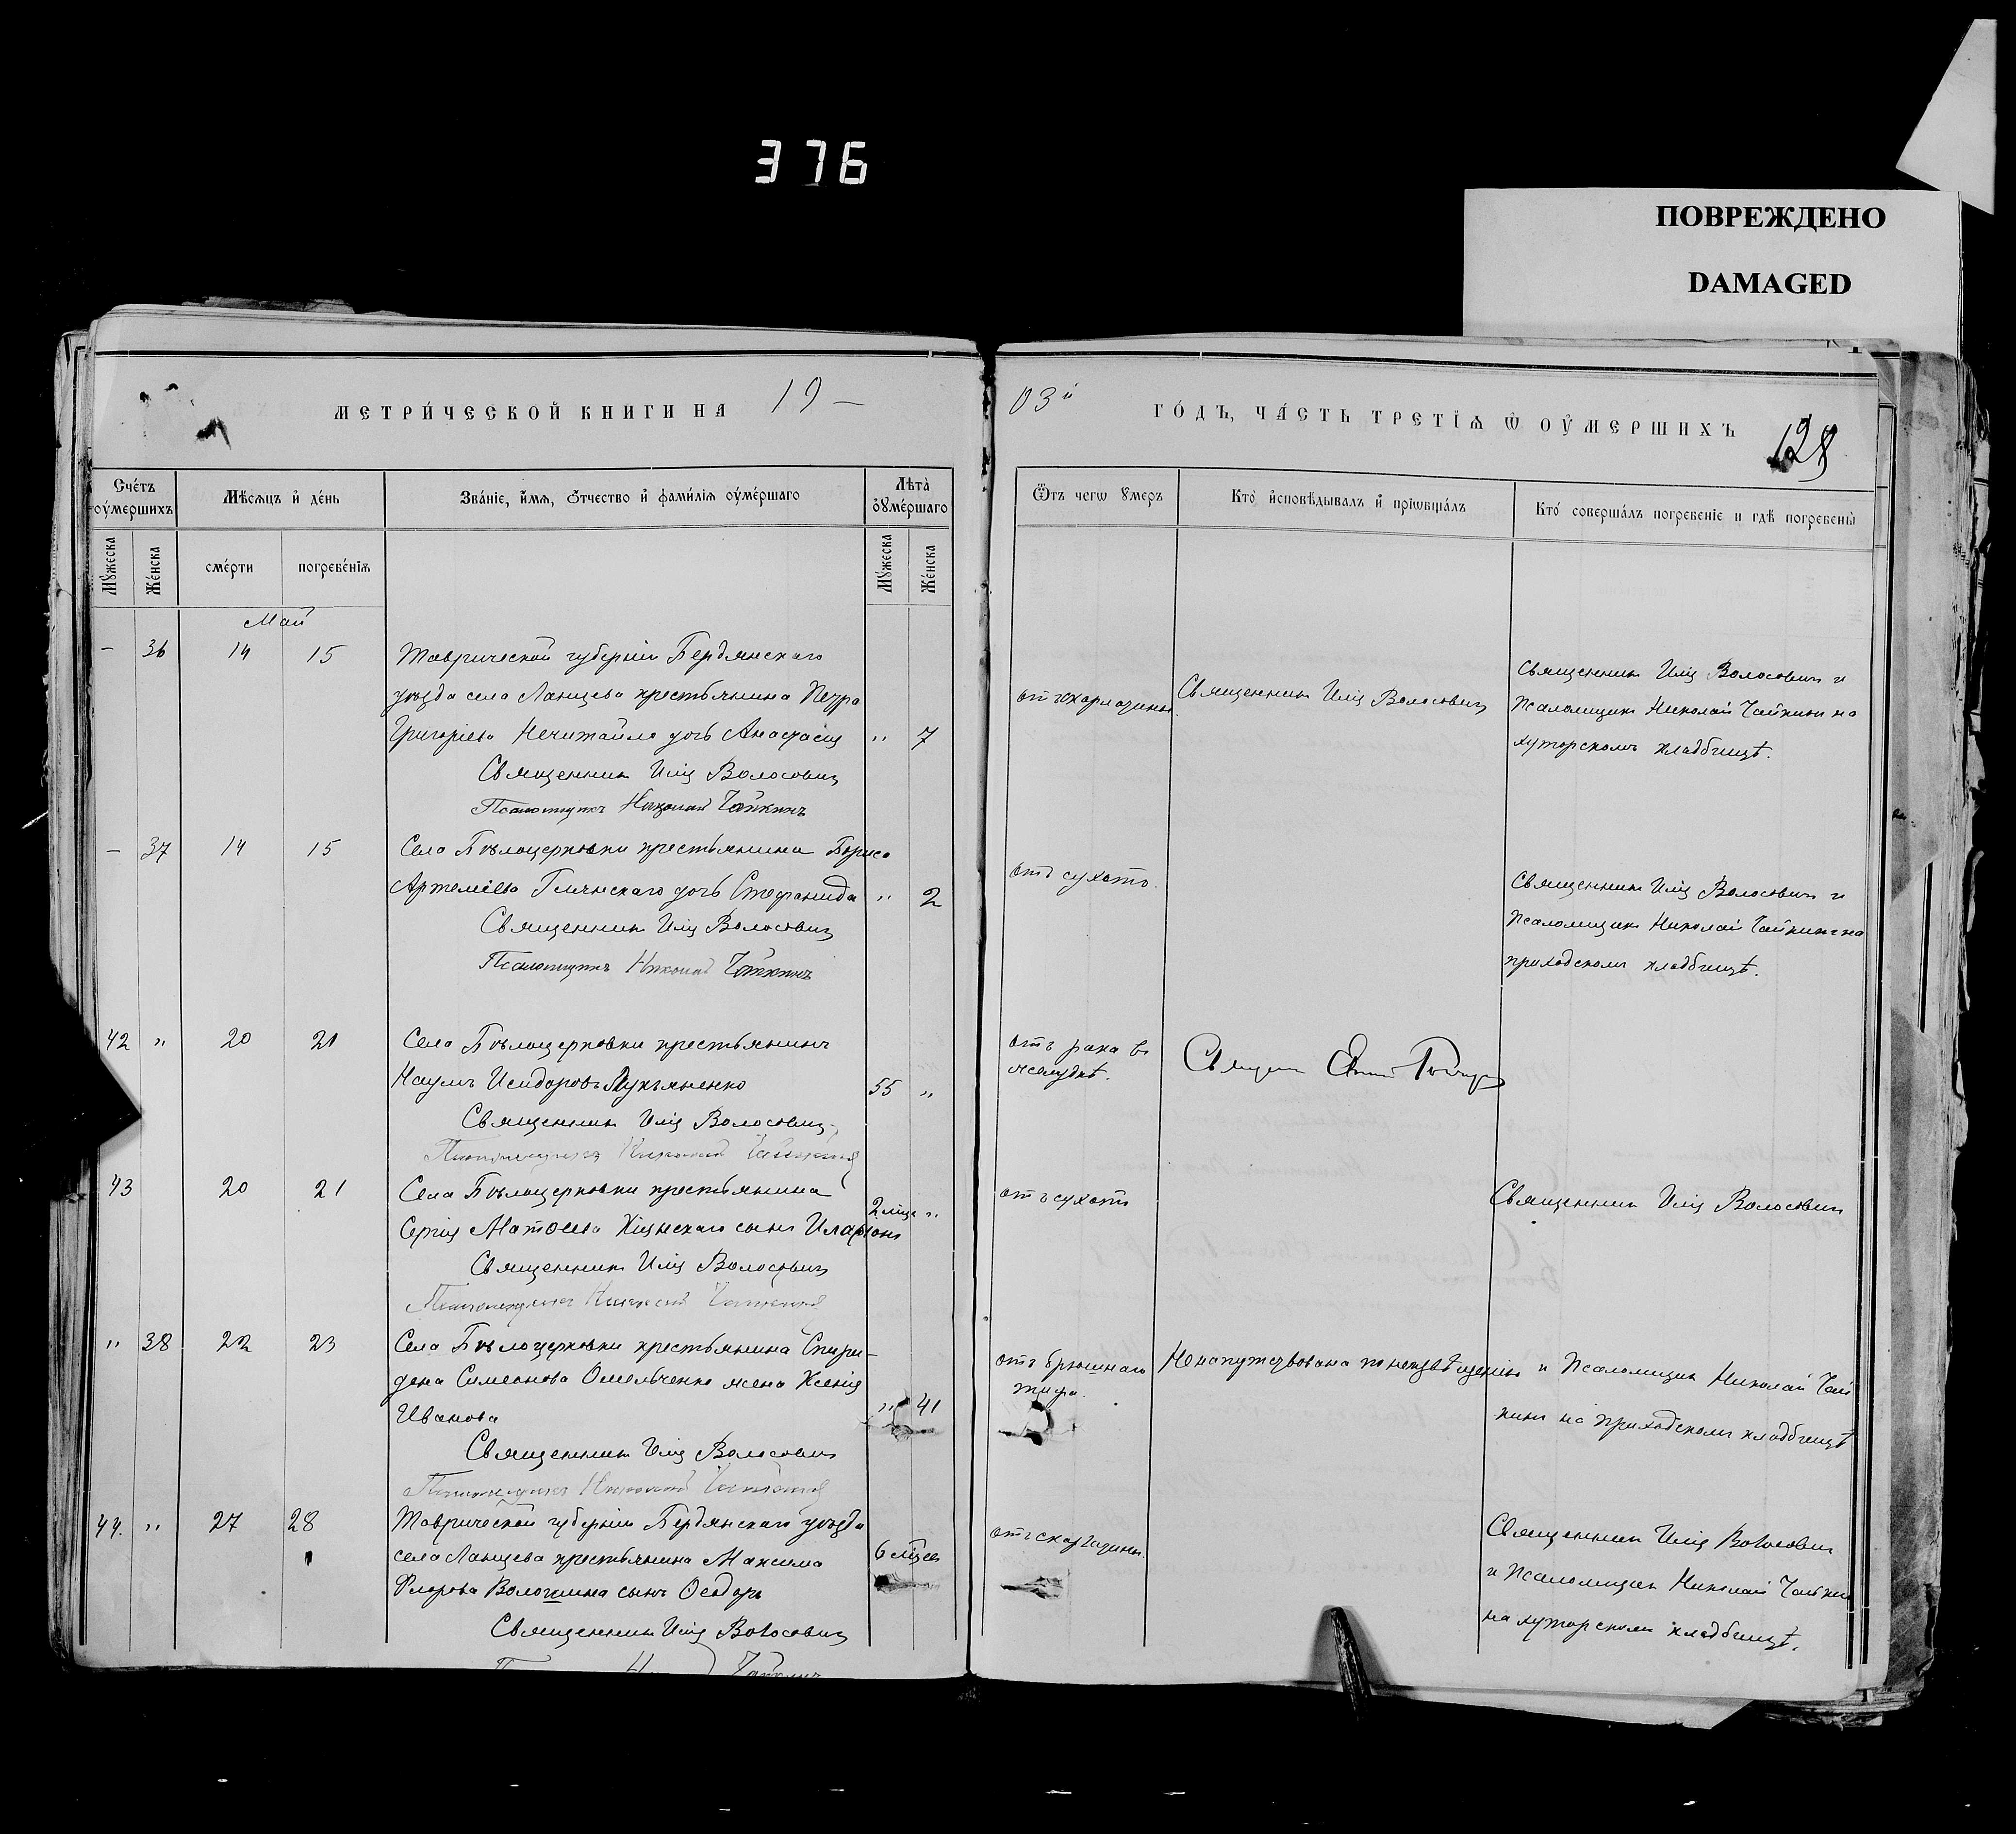 376
ПОВРЕЖДЕНО
DAMAGED
МЕТРИ́ЧЕСКОЙ КНИГИ НА 19 —
03й ГО́ДЪ, ЧА́СТЬ ТРЕТІѦ Ѿ ОУ҆МЕРШИХЪ
128
Сче́тъ оу҆ме́ршихъ
Мѣ́сѧцъ и҆ де́нь
Зва́нїе, и҆́мѧ, ѻ҆́тчество и҆ фами́лїѧ оу҆ме́ршаго
Лѣ́та оу҆ме́ршаго
Ѿ чегѡ̀ оу҆́меръ
Кто̀ и҆сповѣ́дывалъ и҆ прїѡбща́лъ
Кто̀ соверша́лъ погребе́нїе и гдѣ̀ погребены̀
Мꙋ́жеска
Же́нска
сме́рти
погребе́нїѧ
Мꙋ́жеска
Же́нска
Май
— 36 14 15
Таврической губерніи Бердянскаго
уѣзда села Ланцева крестьянина Петра
Григоріева Нечитайло дочь Анастасія " 7
Священникъ Илія Волосовичъ
Псаломщикъ Николай Чайкинъ
отъ скарлатины.
Священникъ Илія Волосовичъ
Священникъ Илія Волосовичъ и
Псаломщикъ Николай Чайкинъ на
хуторскомъ кладбищѣ.
— 37 14 15
Села Бѣлоцерковки крестьянина Бориса
Артеміева Глинскаго дочь Стефанида " 2
Священникъ Илія Волосовичъ
Псаломщикъ Николай Чайкинъ
отъ сухотъ.
Священникъ Илія Волосовичъ и
Псаломщикъ Николай Чайкинъ на
приходскомъ кладбищѣ.
42 " 20 21
Села Бѣлоцерковки крестьянинъ
Наумъ Исидоровъ Лукьяненко 55 "
Священникъ Илія Волосовичъ
Псаломщикъ Николай Чайкинъ
отъ рака въ
желудкѣ.
Священ
43 20 21
Села Бѣлоцерковки крестьянина
Сергія Матѳеева сынъ Иларіонъ 2 мѣс "
Священникъ Илія Волосовичъ
Псаломщикъ Николай Чайкинъ
отъ сухотъ
Священникъ Илія Волосовичъ
" 38 22 23
Села Бѣлоцерковки крестьянина Спири-
дона Симеонова Омельченко жена Ксенія
Иванова " 41
Священникъ Илія Волосовичъ
Псаломщикъ Николай Чайкинъ
отъ брюшнаго
тифа.
Не напутствована по неизвѣщенію
и Псаломщикъ Николай Чай
кинъ на приходскомъ кладбищѣ
44. " 27 28
Таврической губерніи Бердянскаго уѣзда
села Ланцева крестьянина Максима
Флорова Волошина сынъ Ѳеодоръ 6 мѣсяц
Священникъ Илія Волосовичъ
отъ скарлатины.
Священникъ Илія Волосовичъ
и Псаломщикъ Николай Чайкинъ
на хуторскомъ кладбищѣ.